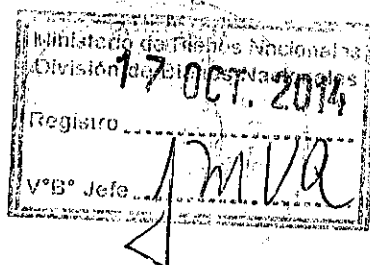 Ministerio de Bienes Nacionales
División de Bienes Nacionales
17 OCT. 2014
Registro
V°B° Jefe